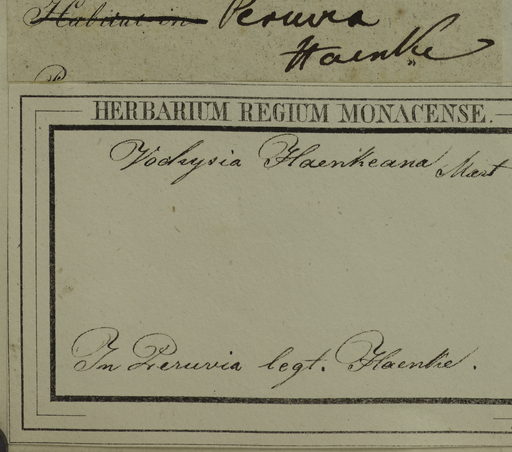 Habitat in Peruvia
Haenke
HERBARIUM REGIUM MONACENSE.
Vochysia Haenkeana Mart
In Peruvia legt. Haenke.